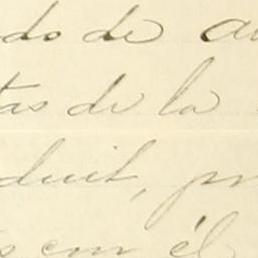 do de
tas de la
duit, pr
s con él